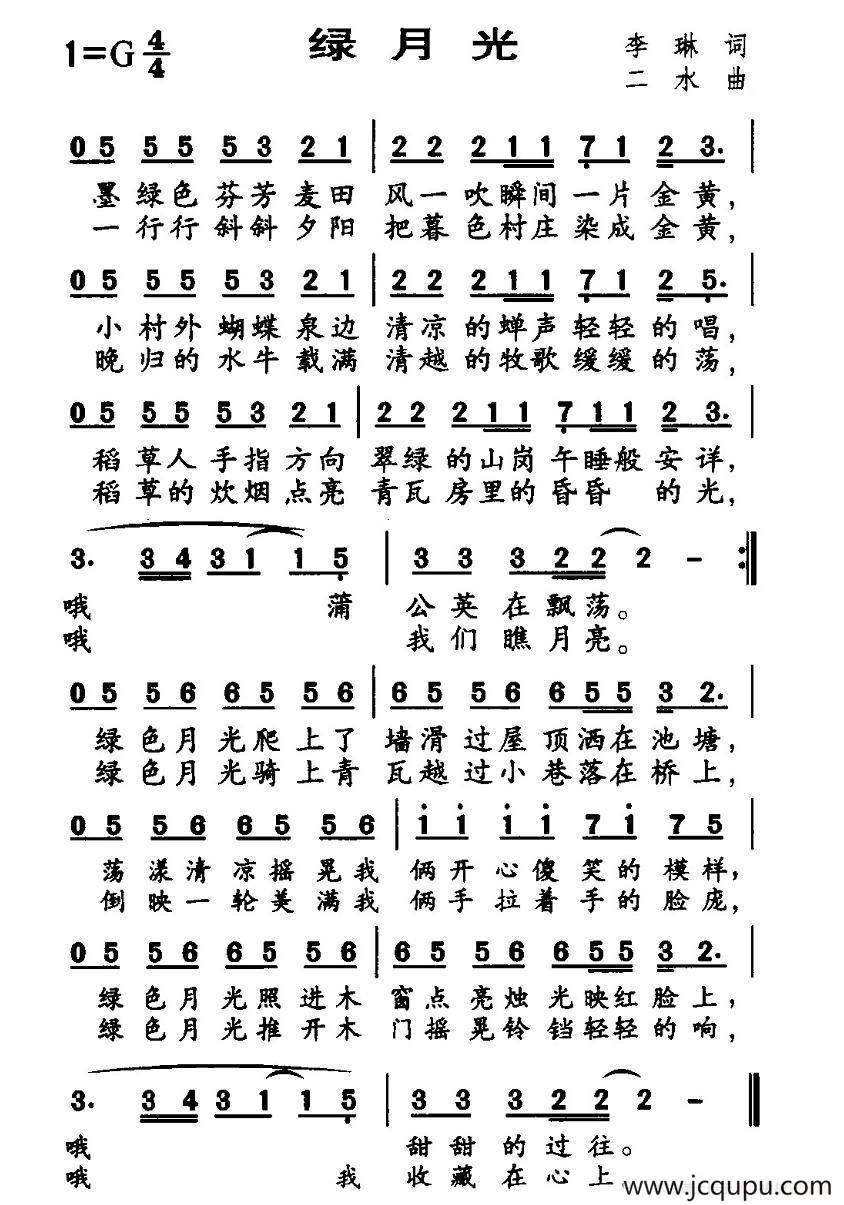 1=G 4/4 绿月光 李琳词
二水曲
0 5 5 5 5 3 2 1 | 2 2 2 1 1 7 1 2 3. |
墨绿色芬芳麦田 风一吹瞬间一片金黄,
一行行斜斜夕阳 把暮色村庄染成金黄,
0 5 5 5 5 3 2 1 | 2 2 2 1 1 7 1 2 5. |
小村外蝴蝶泉边 清凉的蝉声轻轻的唱,
晚归的水牛载满 清越的牧歌缓缓的荡,
0 5 5 5 5 3 2 1 | 2 2 2 1 1 7 1 1 2 3. |
稻草人手指方向 翠绿的山岗午睡般安详,
稻草的炊烟点亮 青瓦房里的昏昏 的光,
3. 3 4 3 1 1 5 | 3 3 3 2 2 2 - :||
哦 蒲 公英在飘荡。
哦 我们瞧月亮。
0 5 5 6 6 5 5 6 | 6 5 5 6 6 5 5 3 2. |
绿色月光爬上了 墙滑过屋顶洒在池塘,
绿色月光骑上青 瓦越过小巷落在桥上,
0 5 5 6 6 5 5 6 | i i i i 7 i 7 5 |
荡漾清凉摇晃我 俩开心傻笑的模样,
倒映一轮美满我 俩手拉着手的脸庞,
0 5 5 6 6 5 5 6 | 6 5 5 6 6 5 5 3 2. |
绿色月光照进木 窗点亮烛光映红脸上,
绿色月光推开木 门摇晃铃铛轻轻的响,
3. 3 4 3 1 1 1 5 | 3 3 3 2 2 2 - ||
哦 甜甜的过往。
哦 我 收藏在心上
www.jcqupu.com